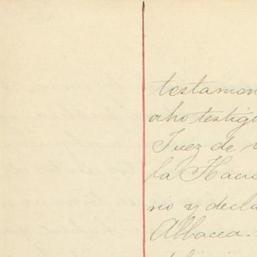 testamen
ocho testig
Juez de
la Hac
no y decla
Albacea.